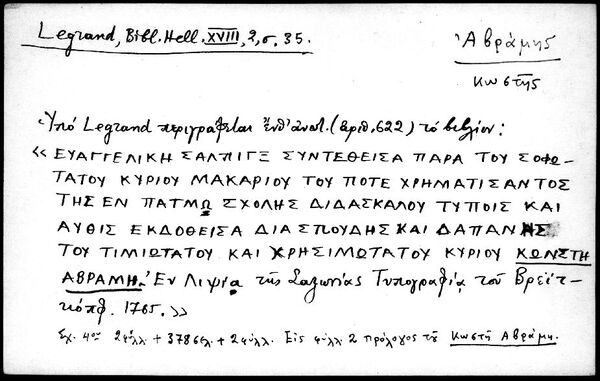 Legrand, Bibl. Hell. XVIII, 2, σ. 35.
Ἀβράμης
Κωστῆς
Ὑπό Legrand περιγράφεται ἐνθ' ἀνωτ. (ἀριθ. 622) τό βιβλίον:
«ΕΥΑΓΓΕΛΙΚΗ ΣΑΛΠΙΓΞ ΣΥΝΤΕΘΕΙΣΑ ΠΑΡΑ ΤΟΥ ΣΟΦΩ-
ΤΑΤΟΥ ΚΥΡΙΟΥ ΜΑΚΑΡΙΟΥ ΤΟΥ ΠΟΤΕ ΧΡΗΜΑΤΙΣΑΝΤΟΣ
ΤΗΣ ΕΝ ΠΑΤΜῼ ΣΧΟΛΗΣ ΔΙΔΑΣΚΑΛΟΥ ΤΥΠΟΙΣ ΚΑΙ
ΑΥΘΙΣ ΕΚΔΟΘΕΙΣΑ ΔΙΑ ΣΠΟΥΔΗΣ ΚΑΙ ΔΑΠΑΝΗΣ
ΤΟΥ ΤΙΜΙΩΤΑΤΟΥ ΚΑΙ ΧΡΗΣΙΜΩΤΑΤΟΥ ΚΥΡΙΟΥ ΚΩΝΣΤΗ
ΑΒΡΑΜΗ. Ἐν Λιψίᾳ τῆς Σαξωνίας Τυπογραφίᾳ τοῦ Βρεῖτ-
κόπφ. 1765.»
Σχ. 4ον 2φύλλ. + 378σελ. + 2φύλλ. Εἰς φύλλ. 2 πρόλογος τοῦ Κωστῆ Ἀβράμη.